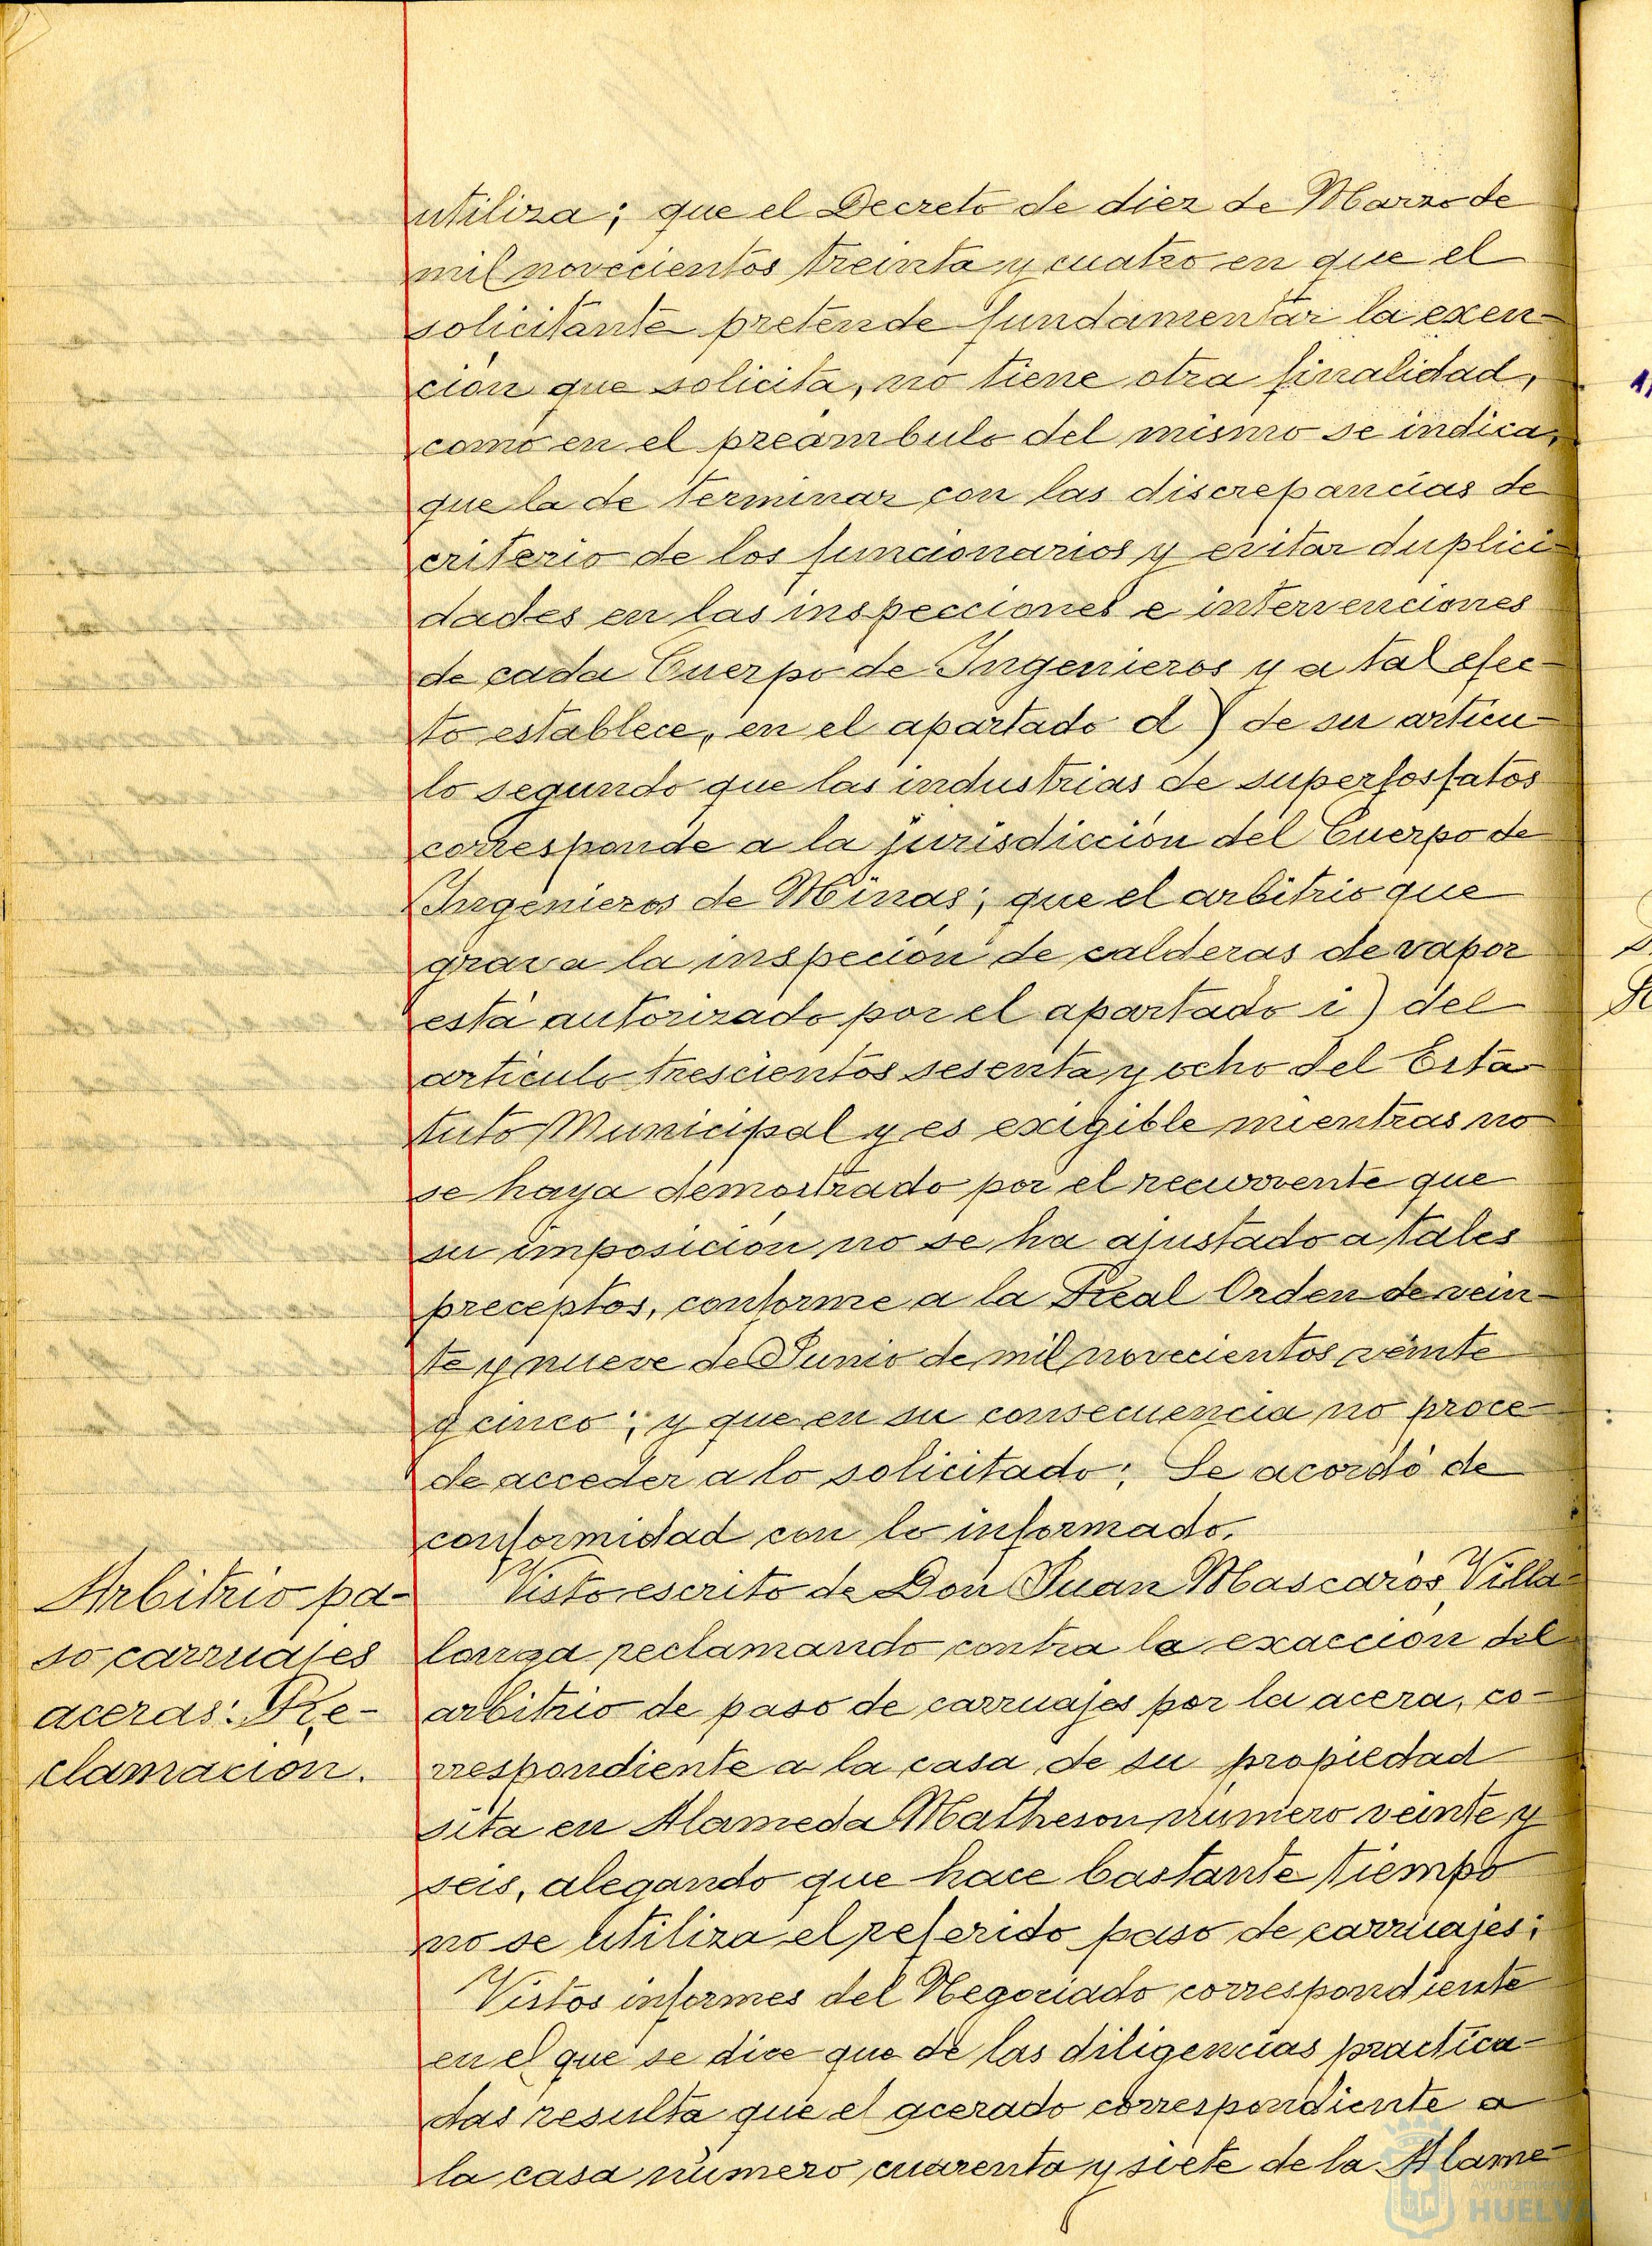 utiliza; que el Decreto de diez de Marzo de
mil novecientos treinta y cuatro en que el
solicitante pretende fundamentar la exen-
ción que solicita, no tiene otra finalidad,
como en el preámbulo del mismo se indica,
que la de terminar con las discrepancias de
criterio de los funcionarios y evitar duplici-
dades en las inspecciones e intervenciones
de cada Cuerpo de Ingenieros y a tal efec-
to establece, en el apartado d) de su artícu-
lo segundo que las industrias de superfosfatos
corresponde a la jurisdicción del Cuerpo de
Ingenieros de Minas; que el arbitrio que
grava la inspeción de calderas de vapor
está autorizado por el apartado i) del
artículo trescientos sesenta y ocho del Esta-
tuto Municipal y es exigible mientras no
se haya demostrado por el recurrente que
su imposición no se ha ajustado a tales
preceptos, conforme a la Real Orden de vein-
te y nueve de Junio de mil novecientos veinte
y cinco; y que en su consecuencia no proce-
de acceder a lo solicitado; Se acordó de
conformidad con lo informado.
Arbitrio pa-
so carruajes
aceras: Re-
clamación.
Visto escrito de Don Juan Mascarós Villa-
longa reclamando contra la exacción del
arbitrio de paso de carruajes por la acera, co-
rrespondiente a la casa de su propiedad
sita en Alameda Matheson número veinte y
seis, alegando que hace bastante tiempo
no se utiliza el referido paso de carruajes;
Vistos informes del Negociado correspondiente
en el que se dice que de las diligencias practica-
das resulta que el acerado correspondiente a
la casa número cuarenta y siete de la Alame-
Ayuntamiento
HUELVA